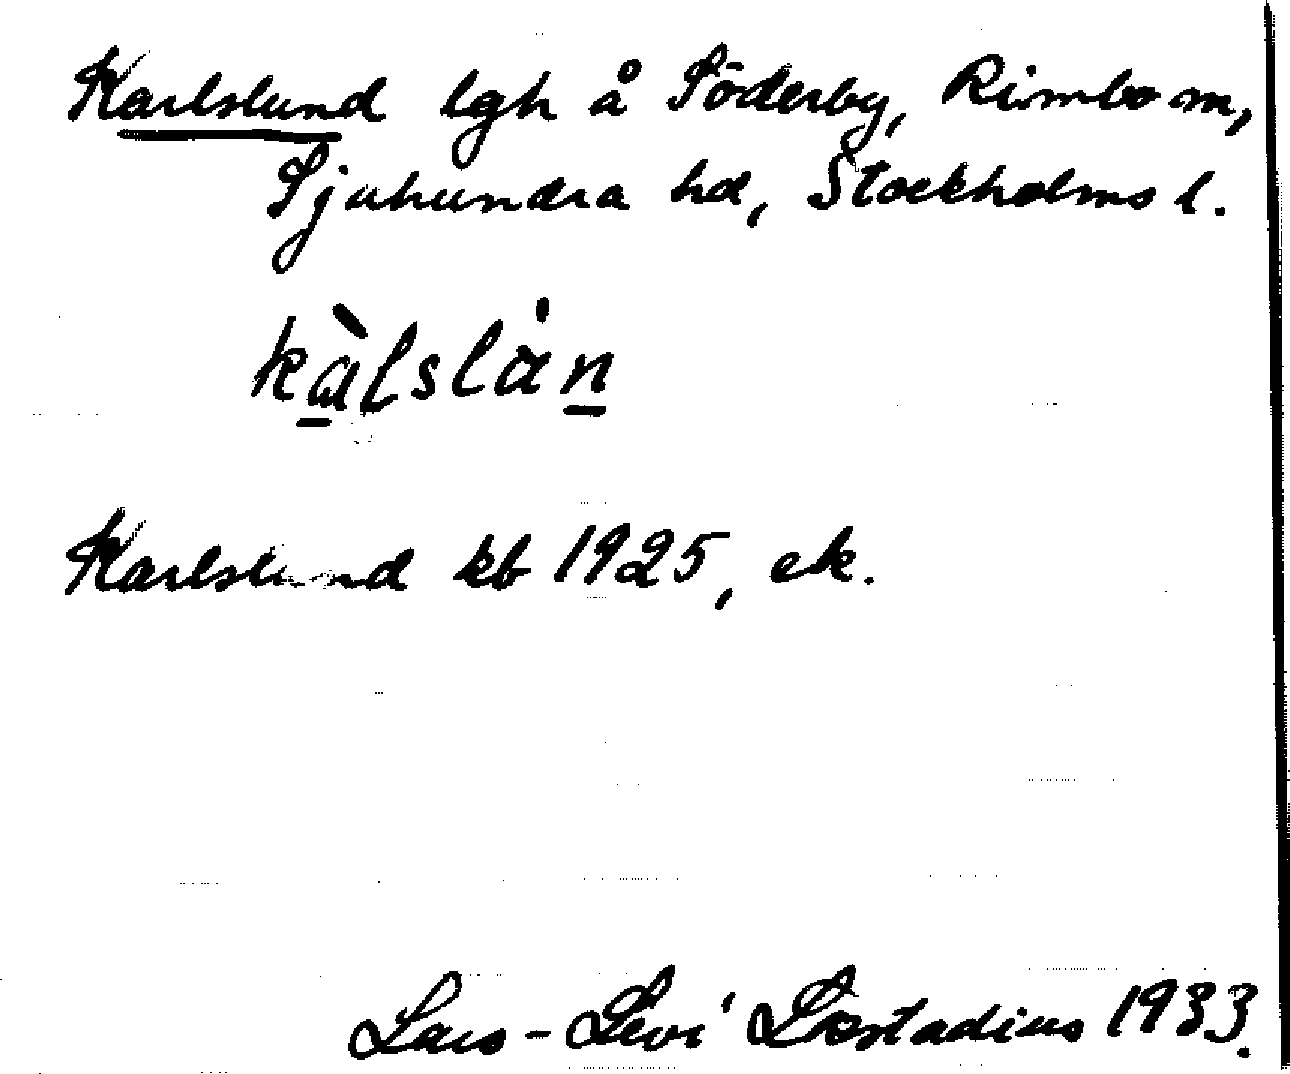 Karlslund lgh å Söderby, Rimbo sn,
Sjuhundra hd, Stockholms l.
kàlslán
Karlslund kb 1925, ek.
Lars-Levi Læstadius 1933.